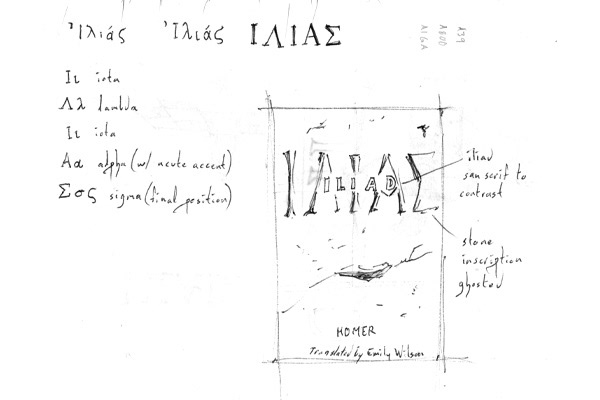 Ἰλιάς Ἰλιάς ΙΛΙΑΣ
Ιι iota
Λλ lambda
Ιι iota
Αα alpha (w/ acute accent)
Σσς sigma (final position)
ΙΛΙΑΣ
ILIAD
HOMER
Translated by Emily Wilson
iliad
san serif to
contrast
stone
inscription
ghosted